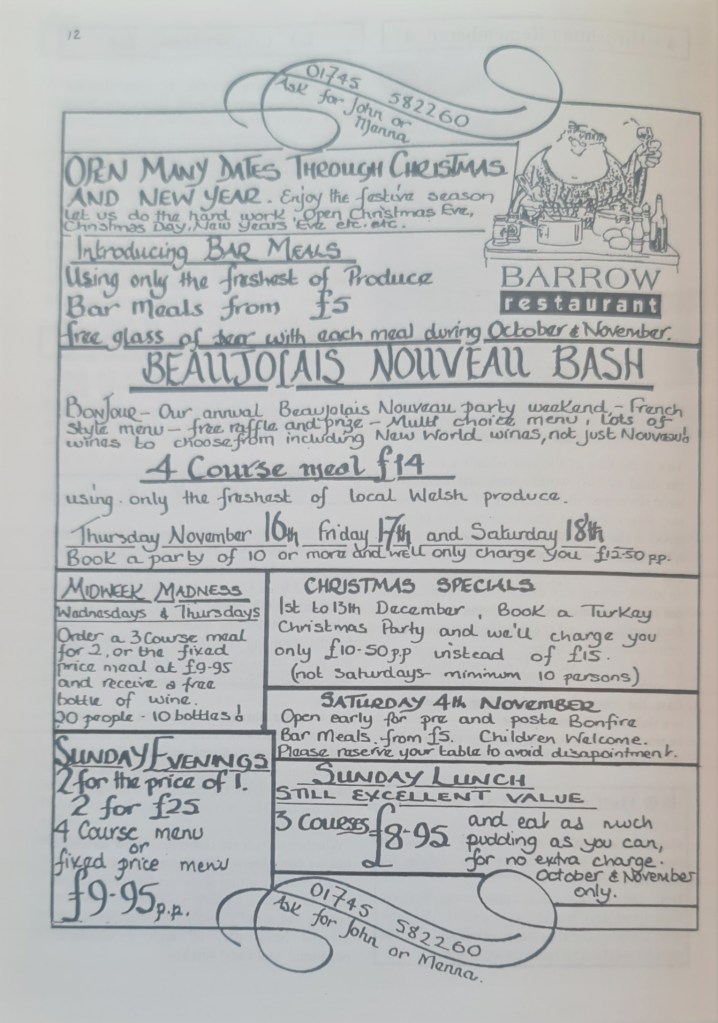 12
01745 582260
Ask for John or
Menna
OPEN MANY DATES THROUGH CHRISTMAS
AND NEW YEAR. Enjoy the festive season
Let us do the hard work, Open Christmas Eve,
Christmas Day, New Years Eve etc. etc.
Introducing BAR MEALS
Using only the freshest of Produce
Bar Meals from £5
free glass of beer with each meal during October & November.
BARROW
restaurant
BEAUJOLAIS NOUVEAU BASH
BonJour - Our annual Beaujolais Nouveau party weekend, - French
style menu - free raffle and prize - Multi choice menu, Lots of
wines to choose from including New World wines, not just Nouveau!
4 Course meal £14
using only the freshest of local Welsh produce.
Thursday November 16th Friday 17th and Saturday 18th
Book a party of 10 or more and we'll only charge you £12-50 pp.
MIDWEEK MADNESS
Wednesdays & Thursdays
Order a 3 Course meal
for 2, or the fixed
price meal at £9-95
and receive a free
bottle of wine.
20 people - 10 bottles!
CHRISTMAS SPECIALS
1st to 13th December, Book a Turkay
Christmas Party and we'll charge you
only £10-50 p.p instead of £15.
(not Saturdays - minimum 10 persons)
SATURDAY 4th NOVEMBER
Open early for pre and poste Bonfire
Bar Meals, from £5. Children Welcome.
Please reserve your table to avoid disapointment.
SUNDAY EVENINGS
2 for the price of 1.
2 for £25
4 Course menu
or
fixed price menu
£9-95 p.p.
SUNDAY LUNCH
STILL EXCELLENT VALUE
3 COURSES £8-95 and eat as much
pudding as you can,
for no extra charge.
October & November
only.
01745 582260
Ask for John or Menna.